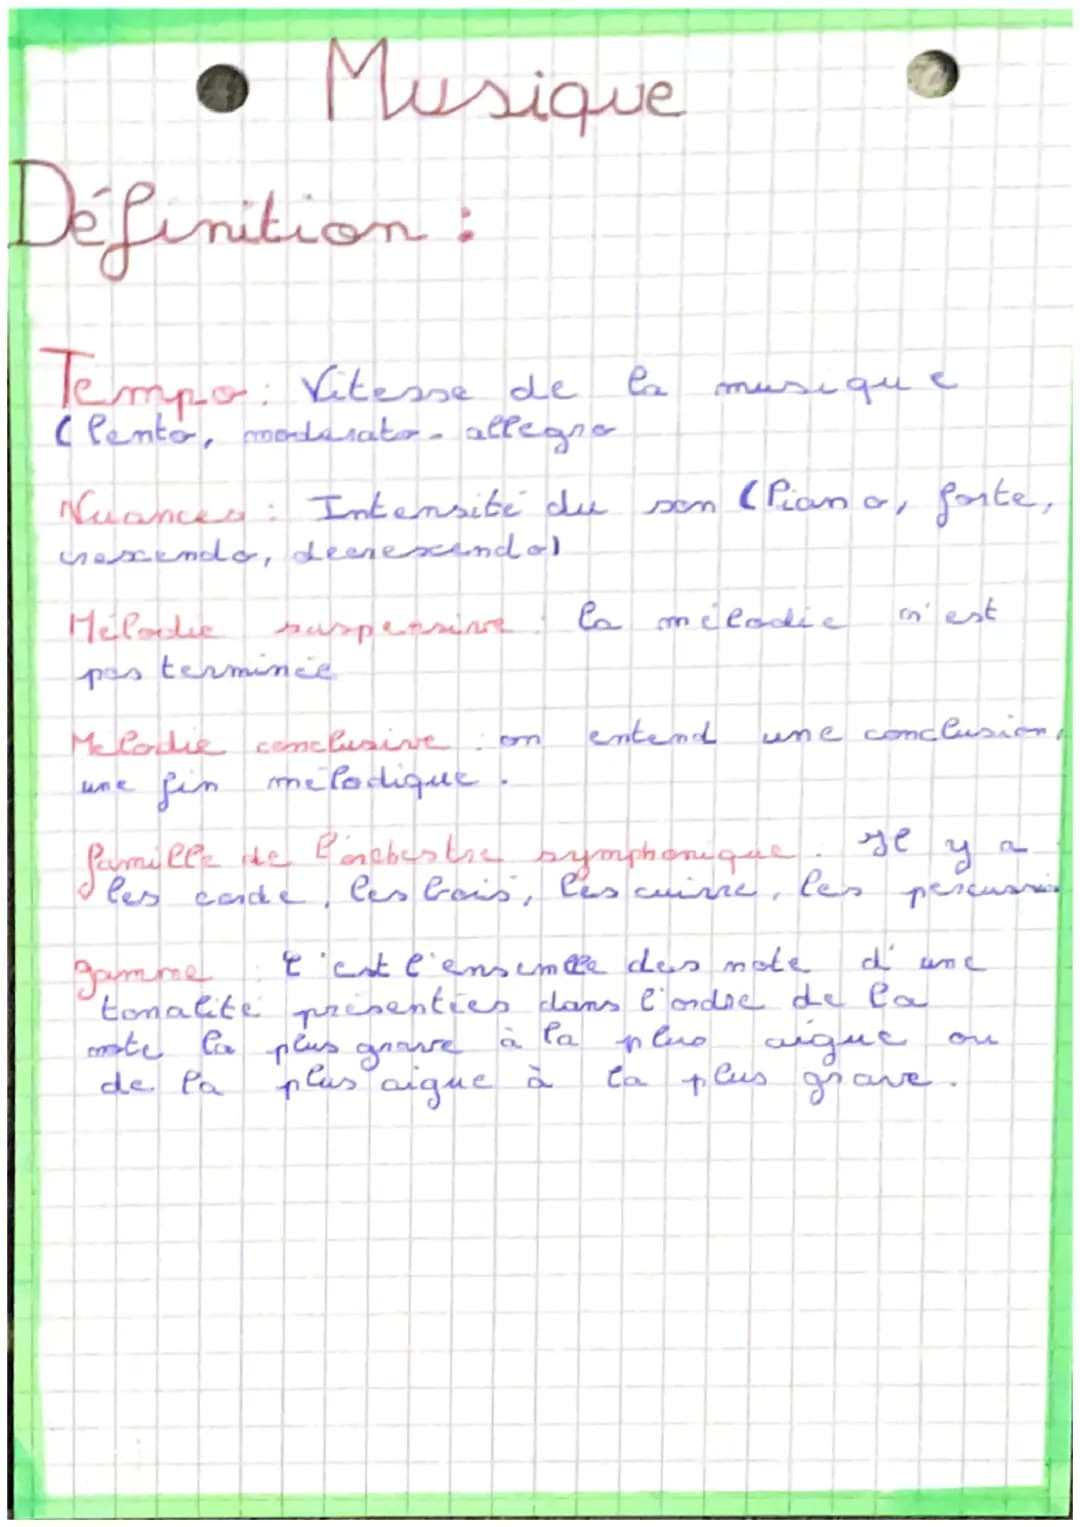 Musique
Définition :
Tempo : Vitesse de la musique
(lento, moderato - allegro
Nuances : Intensité du son (Piano, forte,
crescendo, decrescendo)
Mélodie suspensive : la mélodie n'est
pas terminée
Mélodie conclusive : on entend une conclusion,
une fin mélodique.
famille de l'orchestre symphonique : Il y a
les corde, les bois, les cuivre, les percussio
gamme : C'est l'ensemble des note d'une
tonalité présentées dans l'ordre de la
note la plus grave à la plus aigue ou
de la plus aigue à la plus grave.